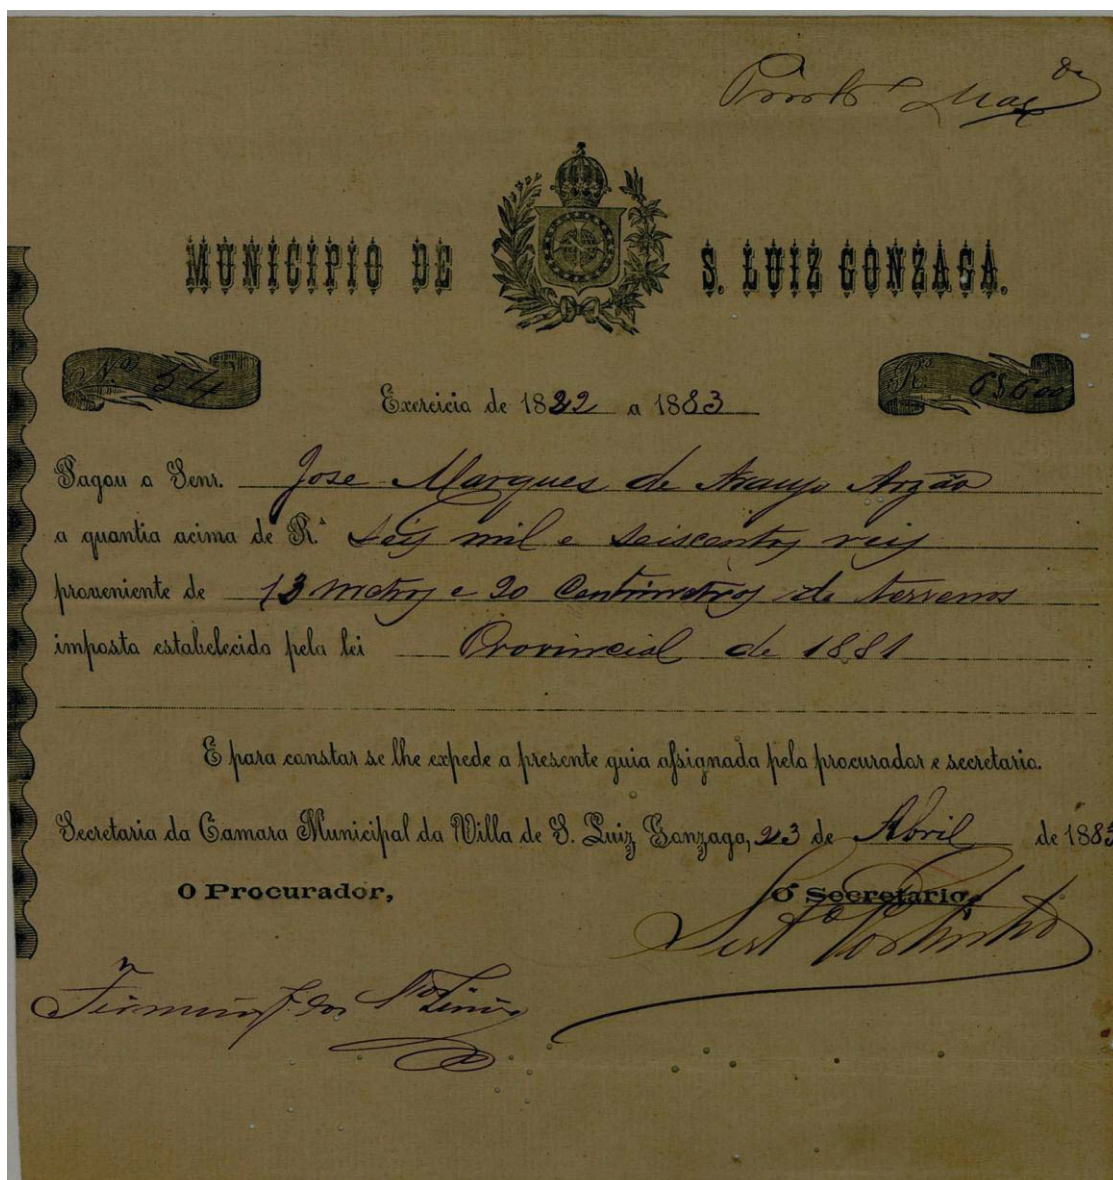 MUNICIPIO DE S. LUIZ GONZAGA.
Nº 54
Rs 6$600
Exercicio de 1882 a 1883
Pagou o Senr. Jose Marques de Araujo Arzão
a quantia acima de Rs. Seis mil e seiscentos reis
proveniente de 13 metros e 20 Centimetros de terrenos
imposto estabelecido pela lei Provincial de 1881
E para constar se lhe expede a presente guia assignada pelo procurador e secretario.
Secretaria da Camara Municipal da Villa de S. Luiz Gonzaga, 23 de Abril de 1883
O Procurador,
O Secretario,